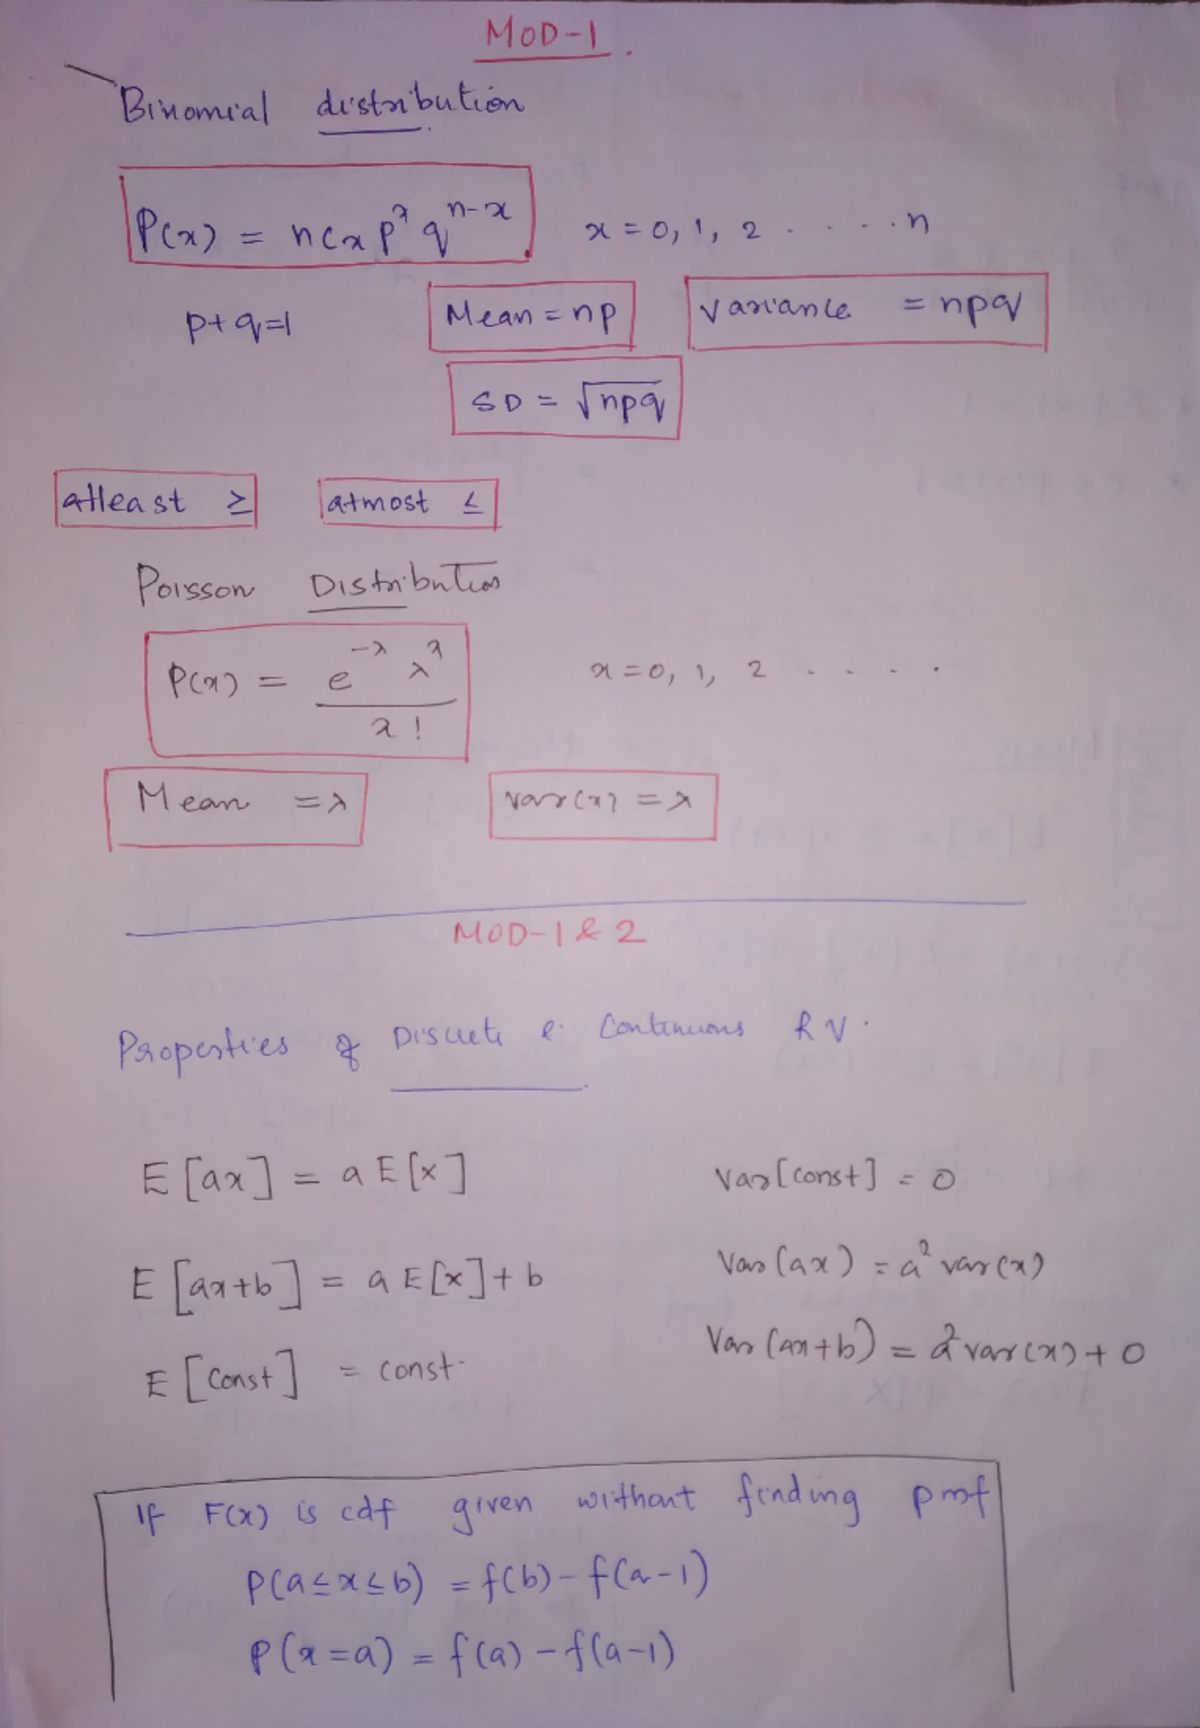 MOD-1.
Binomial distribution
P(x) = nCx p^x q^(n-x) x = 0, 1, 2 . . . . . n
p+q=1 Mean = np Variance = npq
SD = √npq
atleast ≥ atmost ≤
Poisson Distribution
P(x) = e^(-λ) λ^x / x! x = 0, 1, 2 . . . . .
Mean = λ var(x) = λ
MOD-1 & 2
Properties of Discrete & Continuous RV.
E[ax] = a E[x] Var[const] = 0
E[ax+b] = a E[x] + b Var(ax) = a² var(x)
E[Const] = const. Var(ax+b) = a² var(x) + 0
If F(x) is cdf given without finding pmf
P(a≤x≤b) = f(b) - f(a-1)
P(x=a) = f(a) - f(a-1)